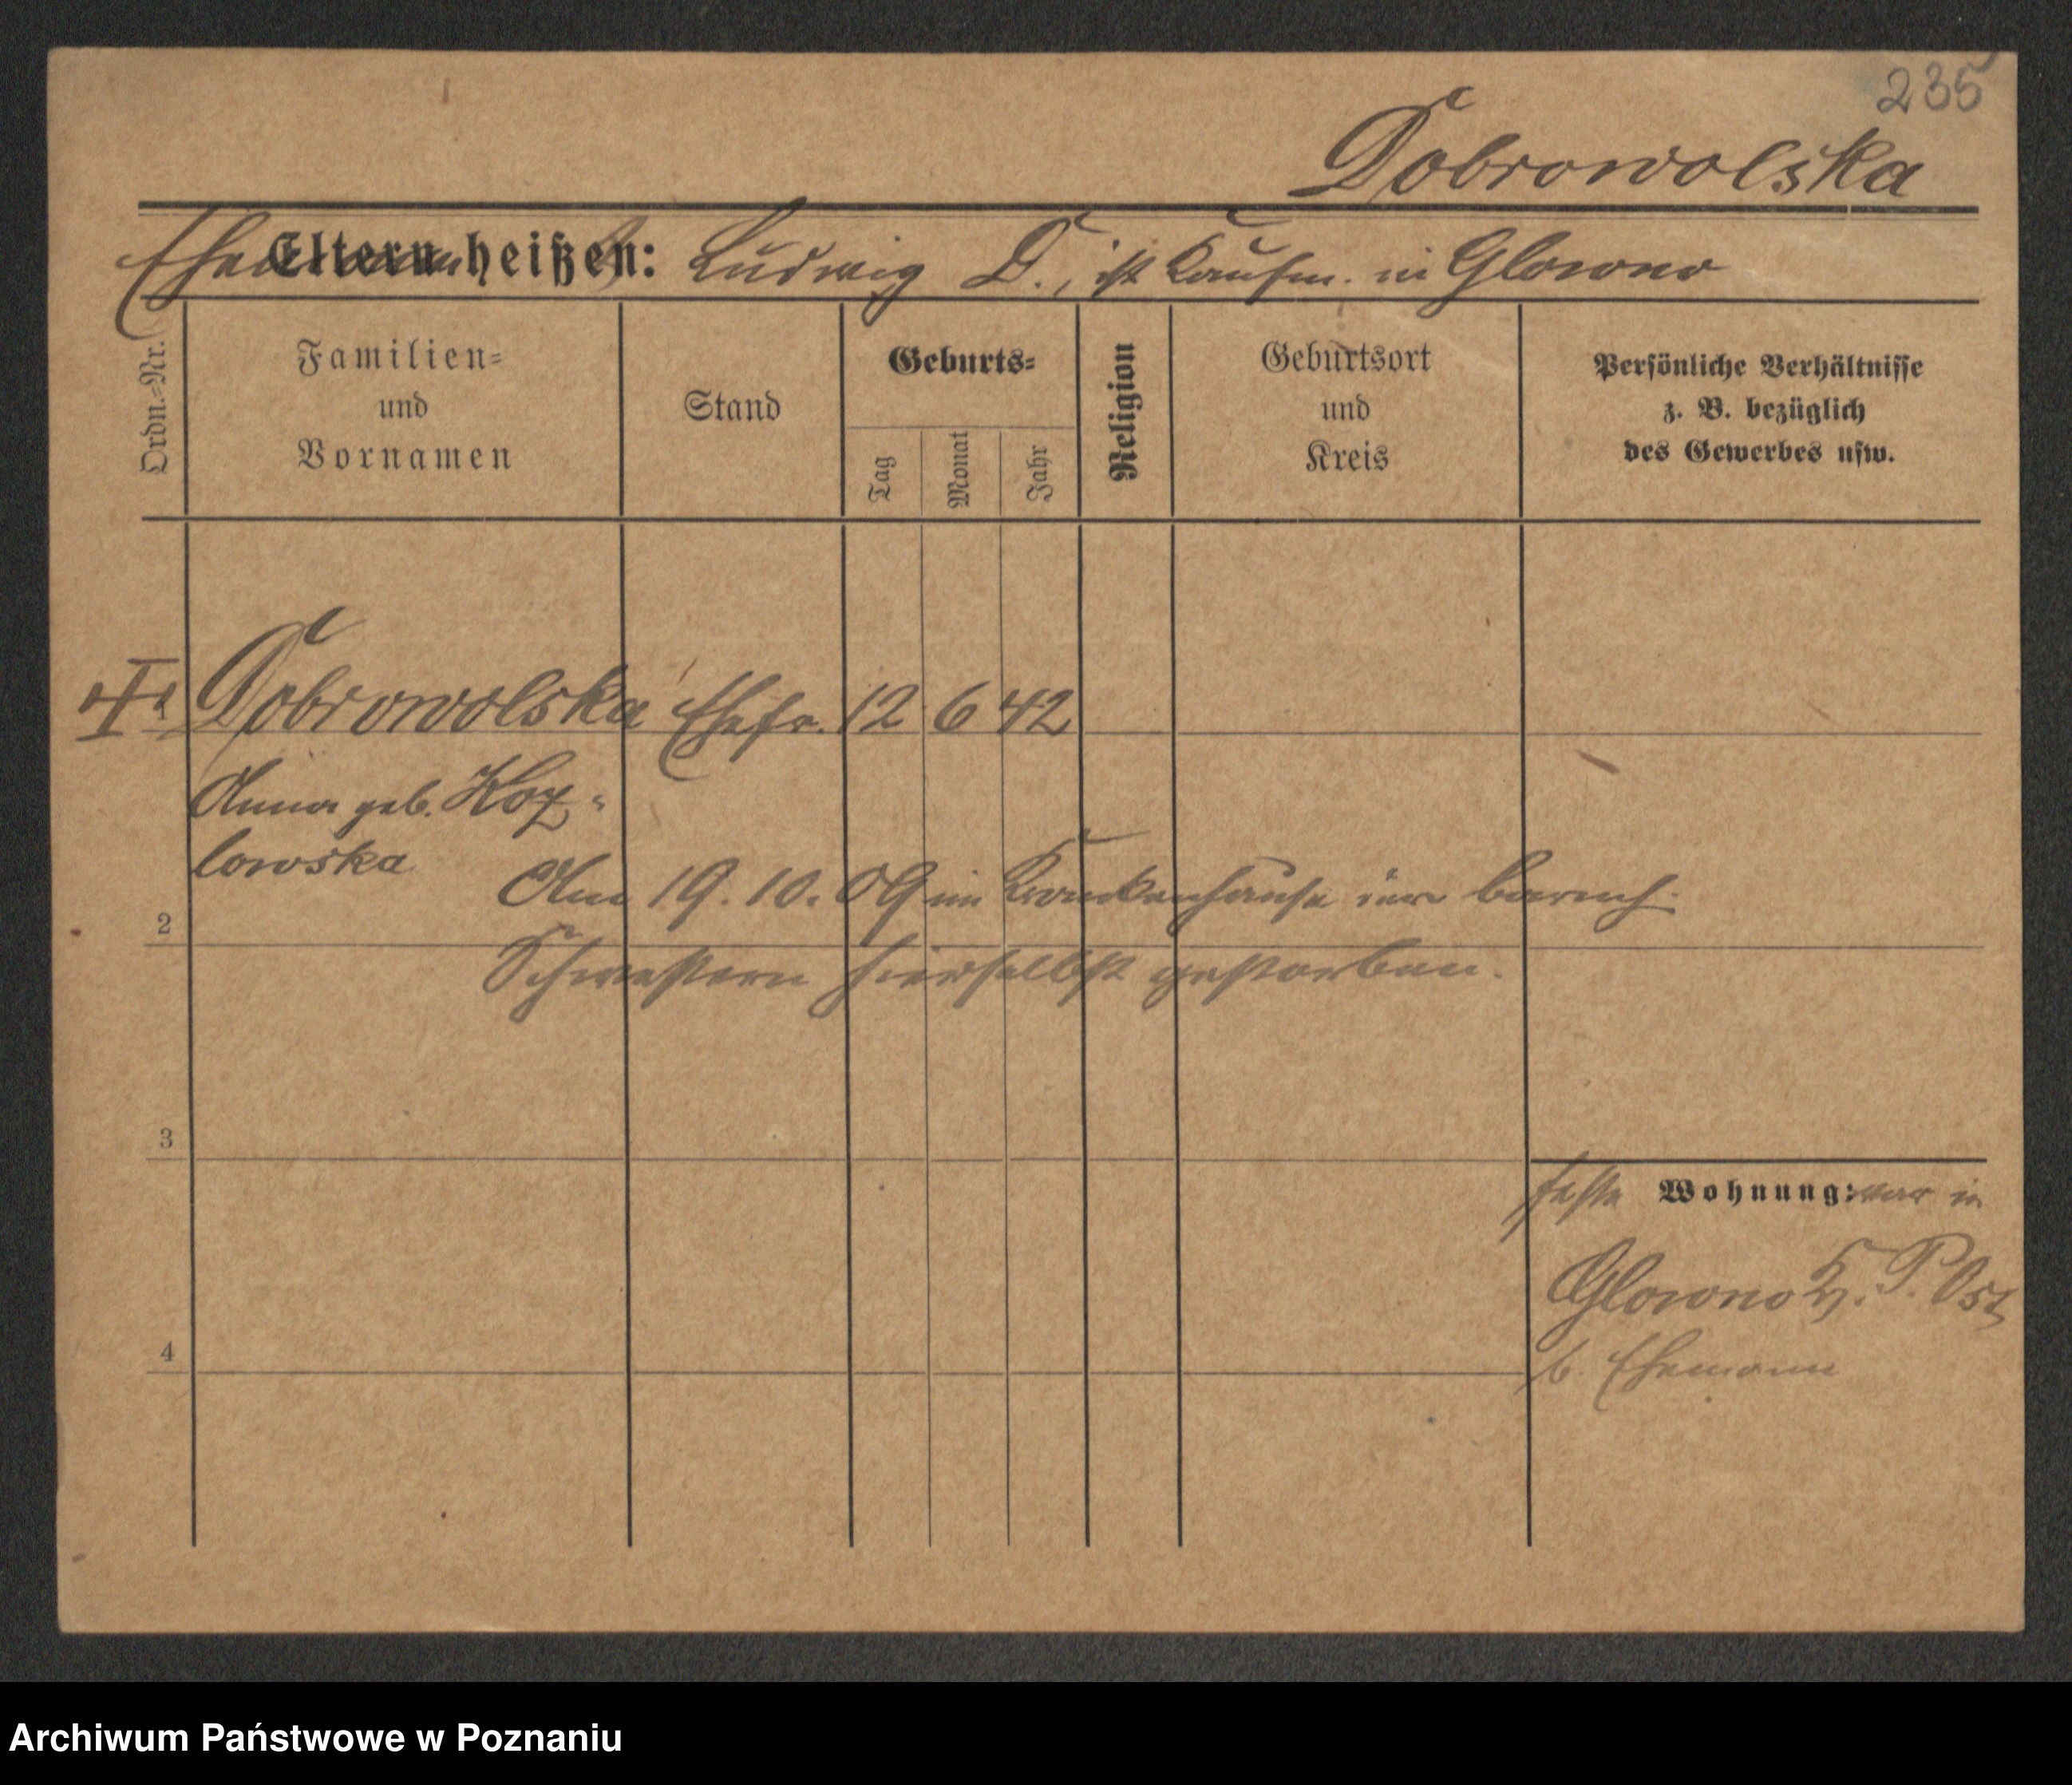 235
Dobrowolska
Eltern heißen: Ludwig D., ist Kaufm. in Glowno
Ordn.=Nr.
Familien=
und
Vornamen
Stand
Geburts=
Tag
Monat
Jahr
Religion
Geburtsort
und
Kreis
Persönliche Verhältnisse
z. B. bezüglich
des Gewerbes usw.
1 Dobrowolska Ehefr. 12 6 42
Anna geb. Koz-
lowska
Am 19. 10. 09 im Krankenhause der barmh.
2
Schwestern hierselbst gestorben.
3
feste Wohnung: war in
Glowno K. P. Ost
4
b. Ehemann
Archiwum Państwowe w Poznaniu